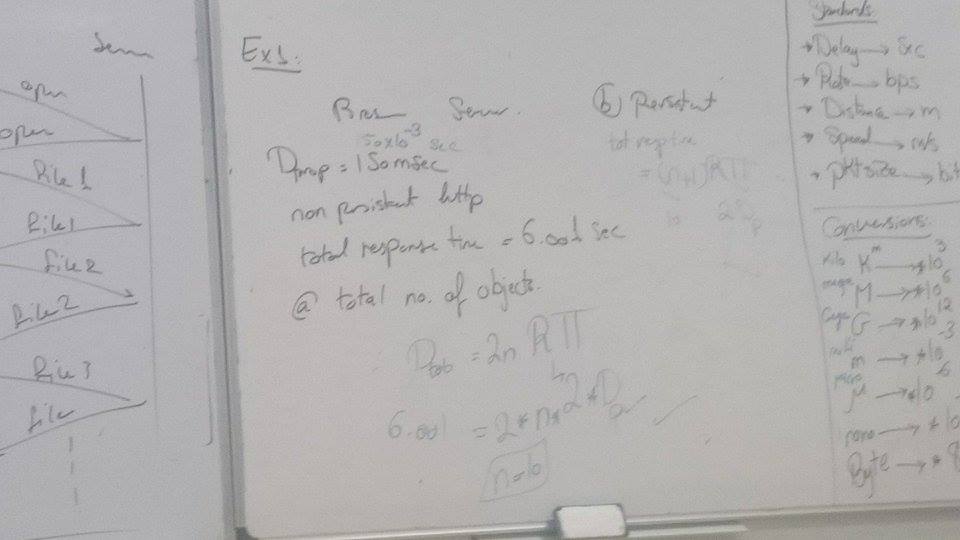 open
open
File 1
File 1
file 2
File 2
File 3
file
Ex1:
Server.
50x10^-3 sec
Dprop = 150msec
non persistent http
total response time = 6.001 sec
@ total no. of objects.
= 2n RTT
6.001 = 2*n*2*D
n=10
(b) Persistent
= (n+1)RTT
Standards
→ Delay → sec
→ Rate → bps
→ Distance → m
→ Speed → m/s
→ pkt size → bit
Conversions
Kilo K → *10^3
mega M → *10^6
Giga G → *10^12
milli m → *10^-3
micro μ → *10^-6
nano → *10
Byte → * 8